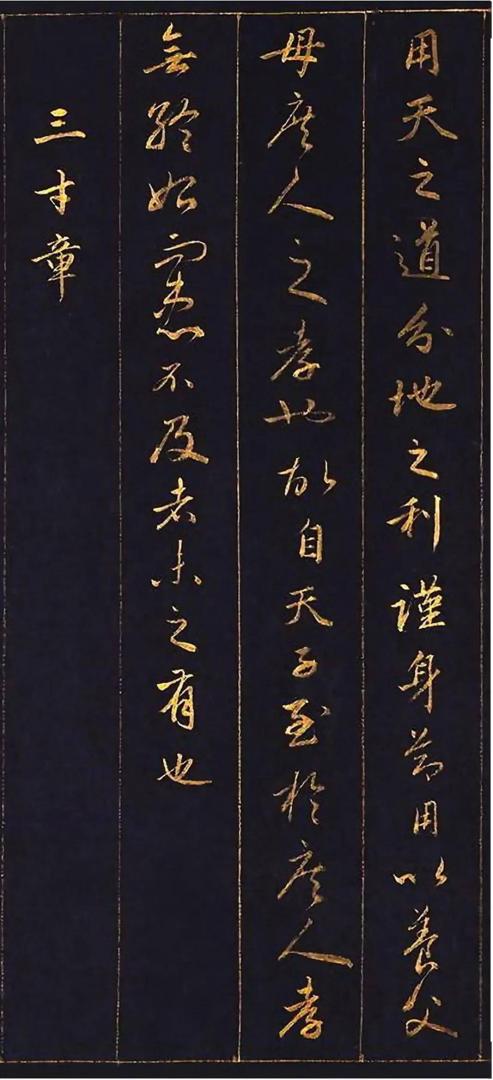 用天之道分地之利謹身節用以養父
母庶人之孝也故自天子至於庶人孝
無終始而患不及者未之有也
三才章